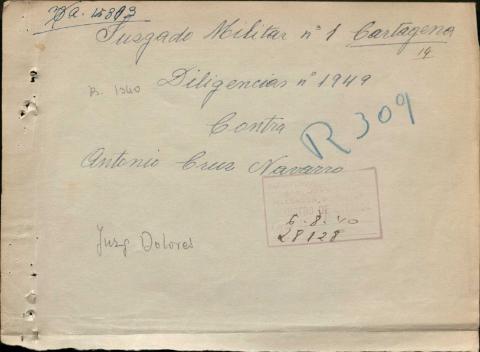 Juzgado Militar nº 1 Cartagena
19
B. 1340
Diligencias nº 1949
R 309
Contra
Antonio Cruz Navarro
6-8-40
28128
Juzg Dolores